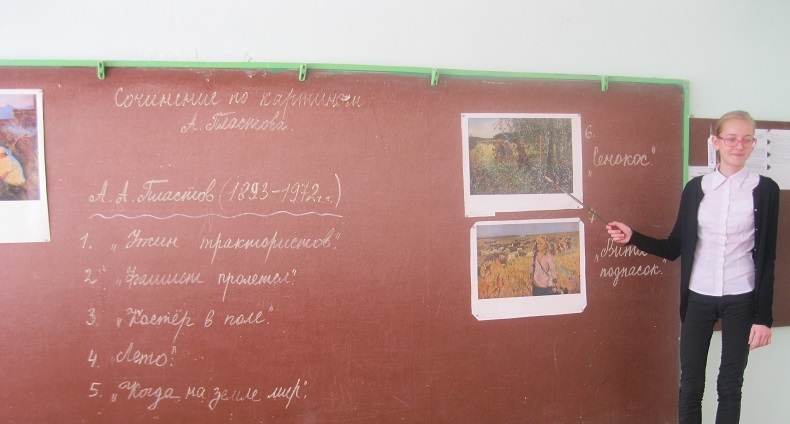 Сочинение по картинам
А. Пластова.
А. А. Пластов (1893-1972 г.г.)
1. „Ужин трактористов".
2. „Фашист пролетел".
3. „Костёр в поле".
4. „Лето".
5. „Когда на земле мир".
6.
„Сенокос".
„Витя
подпасок".